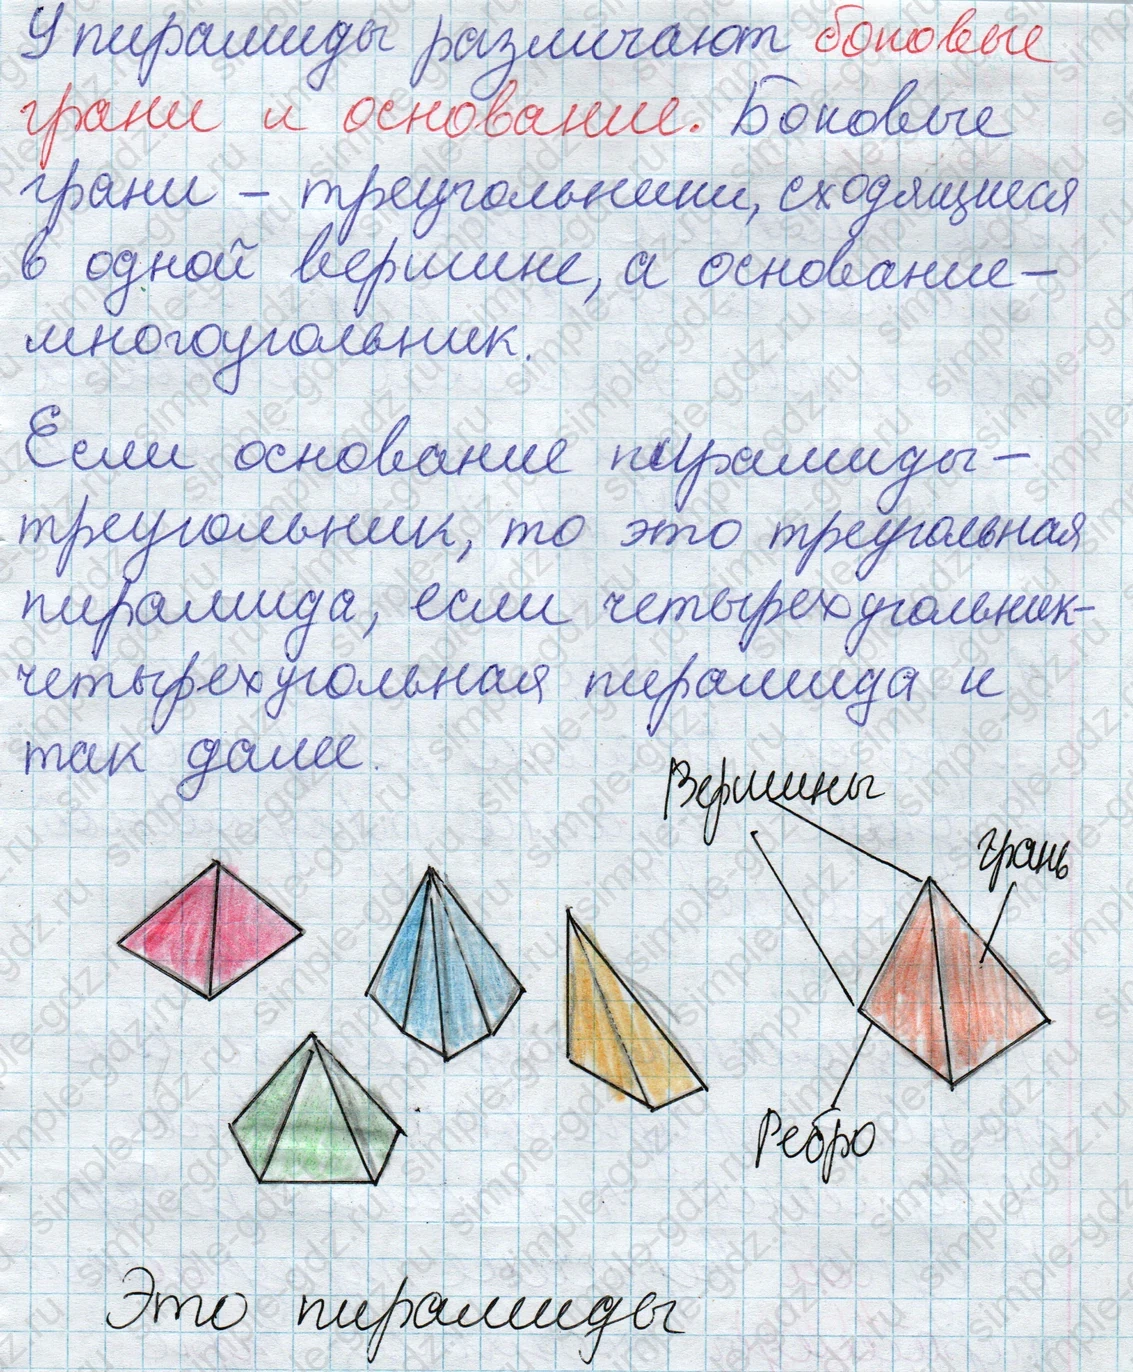 У пирамиды различают боковые
грани и основание. Боковые
грани – треугольники, сходящиеся
в одной вершине, а основание –
многоугольник.
Если основание пирамиды –
треугольник, то это треугольная
пирамида, если четырехугольник-
четырехугольная пирамида и
так далее.
Вершины
грань
Ребро
Это пирамиды
simple-gdz.ru